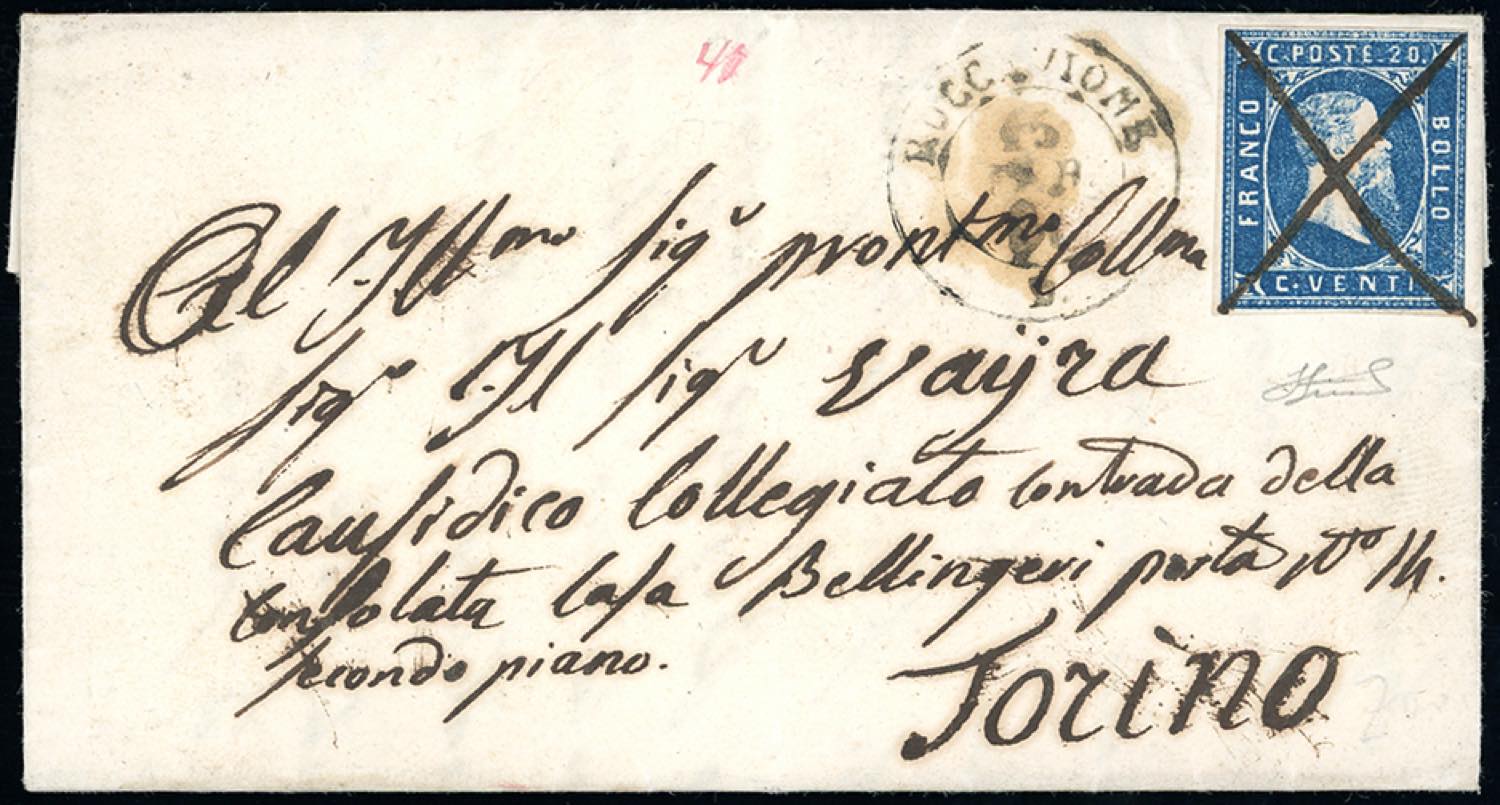 C. POSTE. 20.
FRANCO
BOLLO
C. VENTI
45
Al Ill.mo Sig.r pron.t.mo Coll.mo
Sig.re Il Sig.r Vayra
Causidico Collegiato Contrada della
Consolata Casa Bellingeri porta N.o 14.
secondo piano.
Torino